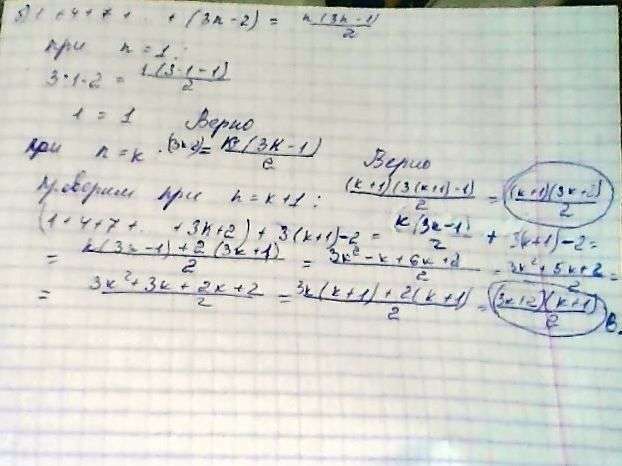 б) 1 + 4 + 7 + ... + (3n-2) = n(3n-1)/2
при n = 1:
3·1-2 = 1(3·1-1)/2
1 = 1 Верно
при n = k = k(3k-1)/2 Верно
проверим при n = k+1: (k+1)(3(k+1)-1)/2 = (k+1)(3k+2)/2
(1+4+7+... + 3k+2) + 3(k+1)-2 = k(3k-1)/2 + 3(k+1)-2 =
= k(3k-1)+2(3k+1)/2 = 3k²-k+6k+2/2 = 3k²+5k+2/2 =
= 3k²+3k+2k+2/2 = 3k(k+1)+2(k+1)/2 = (3k+2)(k+1)/2 В.